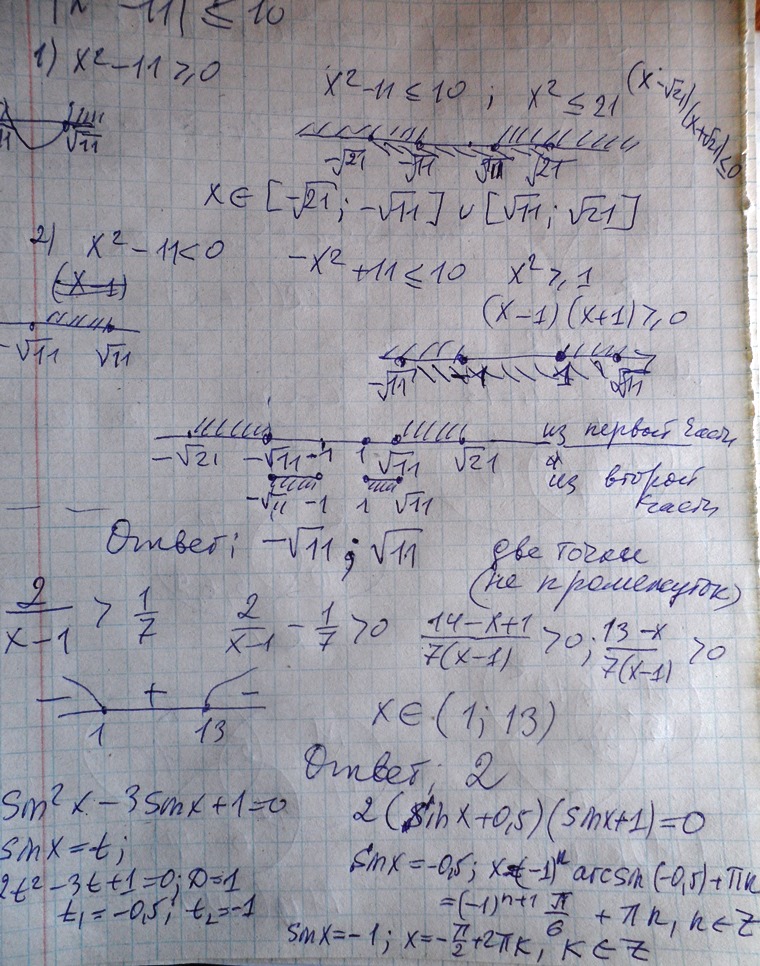 |x² - 11| ≤ 10
1) x² - 11 ≥ 0
x² - 11 ≤ 10 ; x² ≤ 21 (x - √21)(x + √21) ≤ 0
√11
-√21 -√11 √11 √21
x ∈ [-√21 ; -√11] ∪ [√11 ; √21]
2) x² - 11 < 0 -x² + 11 ≤ 10 x² ≥ 1
(x - 1)
(x - 1)(x + 1) ≥ 0
-√11 √11
-√11 -1 1 √11
-√21 -√11 -1 1 √11 √21 из первой части
-√11 -1 1 √11 из второй части
Ответ: -√11 ; √11 две точки
(не промежуток)
2/(x-1) > 1/7 2/(x-1) - 1/7 > 0 (14-x+1)/(7(x-1)) > 0 ; (13-x)/(7(x-1)) > 0
- + -
1 13
x ∈ (1 ; 13)
Ответ: 2
sin²x - 3sinx + 1 = 0
sinx = t ;
2t² - 3t + 1 = 0 ; D = 1
t₁ = -0,5 ; t₂ = -1
2(sinx + 0,5)(sinx + 1) = 0
sinx = -0,5 ; x = (-1)ⁿ arcsin(-0,5) + πn
= (-1)ⁿ⁺¹ π/6 + πn, n ∈ Z
sinx = -1 ; x = -π/2 + 2πk, k ∈ Z